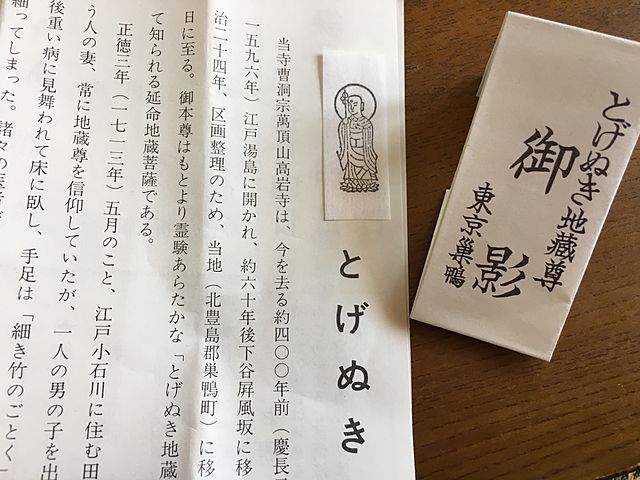 とげぬき地蔵尊
御影
東京巣鴨
とげぬき
当寺曹洞宗萬頂山高岩寺は、今を去る約四〇〇年前（慶長元
一五九六年）江戸湯島に開かれ、約六十年後下谷屏風坂に移
治二十四年、区画整理のため、当地（北豊島郡巣鴨町）に移
日に至る。御本尊はもとより霊験あらたかな「とげぬき地蔵
て知られる延命地蔵菩薩である。
正徳三年（一七一三年）五月のこと、江戸小石川に住む田
う人の妻、常に地蔵尊を信仰していたが、一人の男の子を出
後重い病に見舞われて床に臥し、手足は「細き竹のごとく」
細ってしまった。諸々の